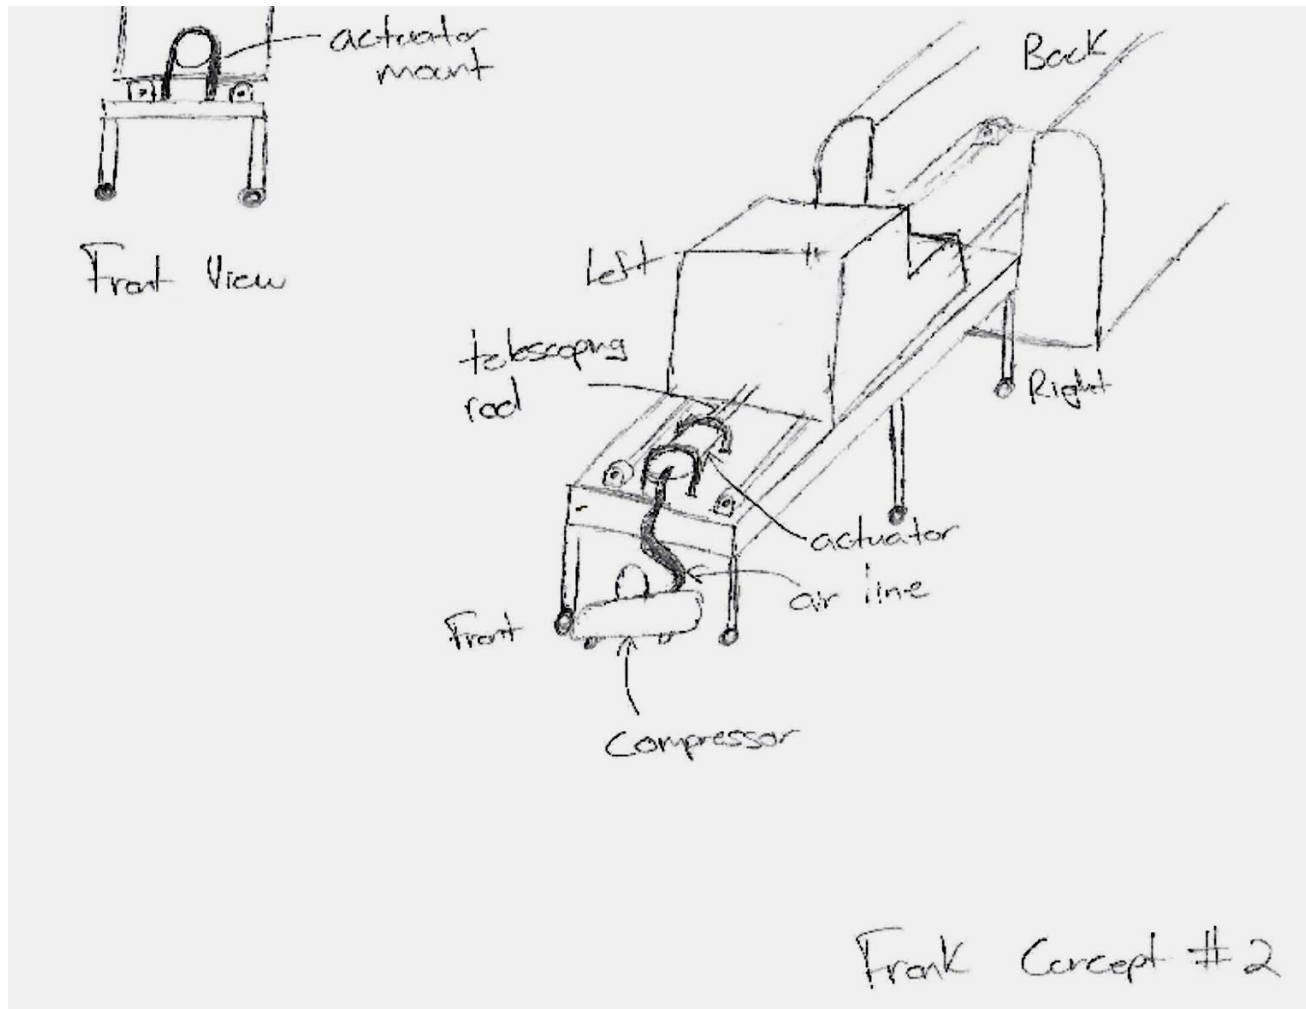 actuator
mount
Front View
Back
Left
telescoping
rod
Right
actuator
air line
Front
Compressor
Frank Concept #2